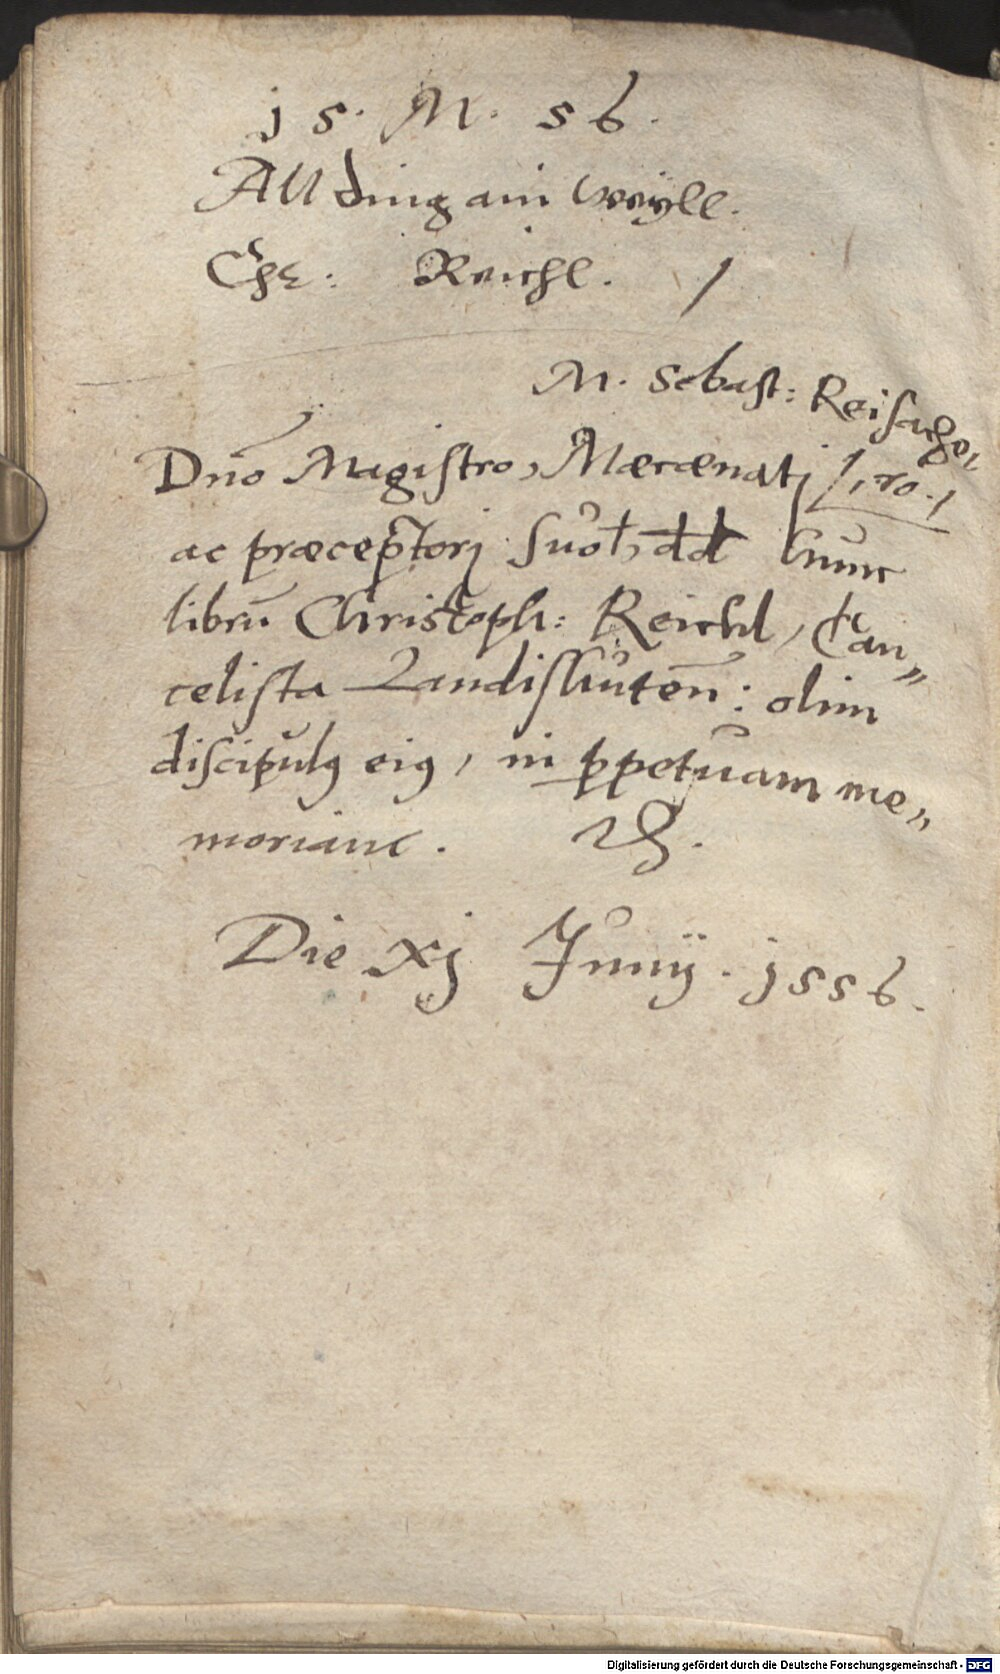 j5. M. 56.
All ding ain weyll.
Chr: Reichl.
M. Sebast: Reisacher
Dno Magistro, Mæcænatj
ac præceptorj suo, dd hunc
libru Christoph: Reichl, Can„
celista Landishuten: olim
discipulꝯ eiꝯ, in ꝑpetuam me„
moriam.
Die xj Junij. j556.
Digitalisierung gefördert durch die Deutsche Forschungsgemeinschaft - DFG